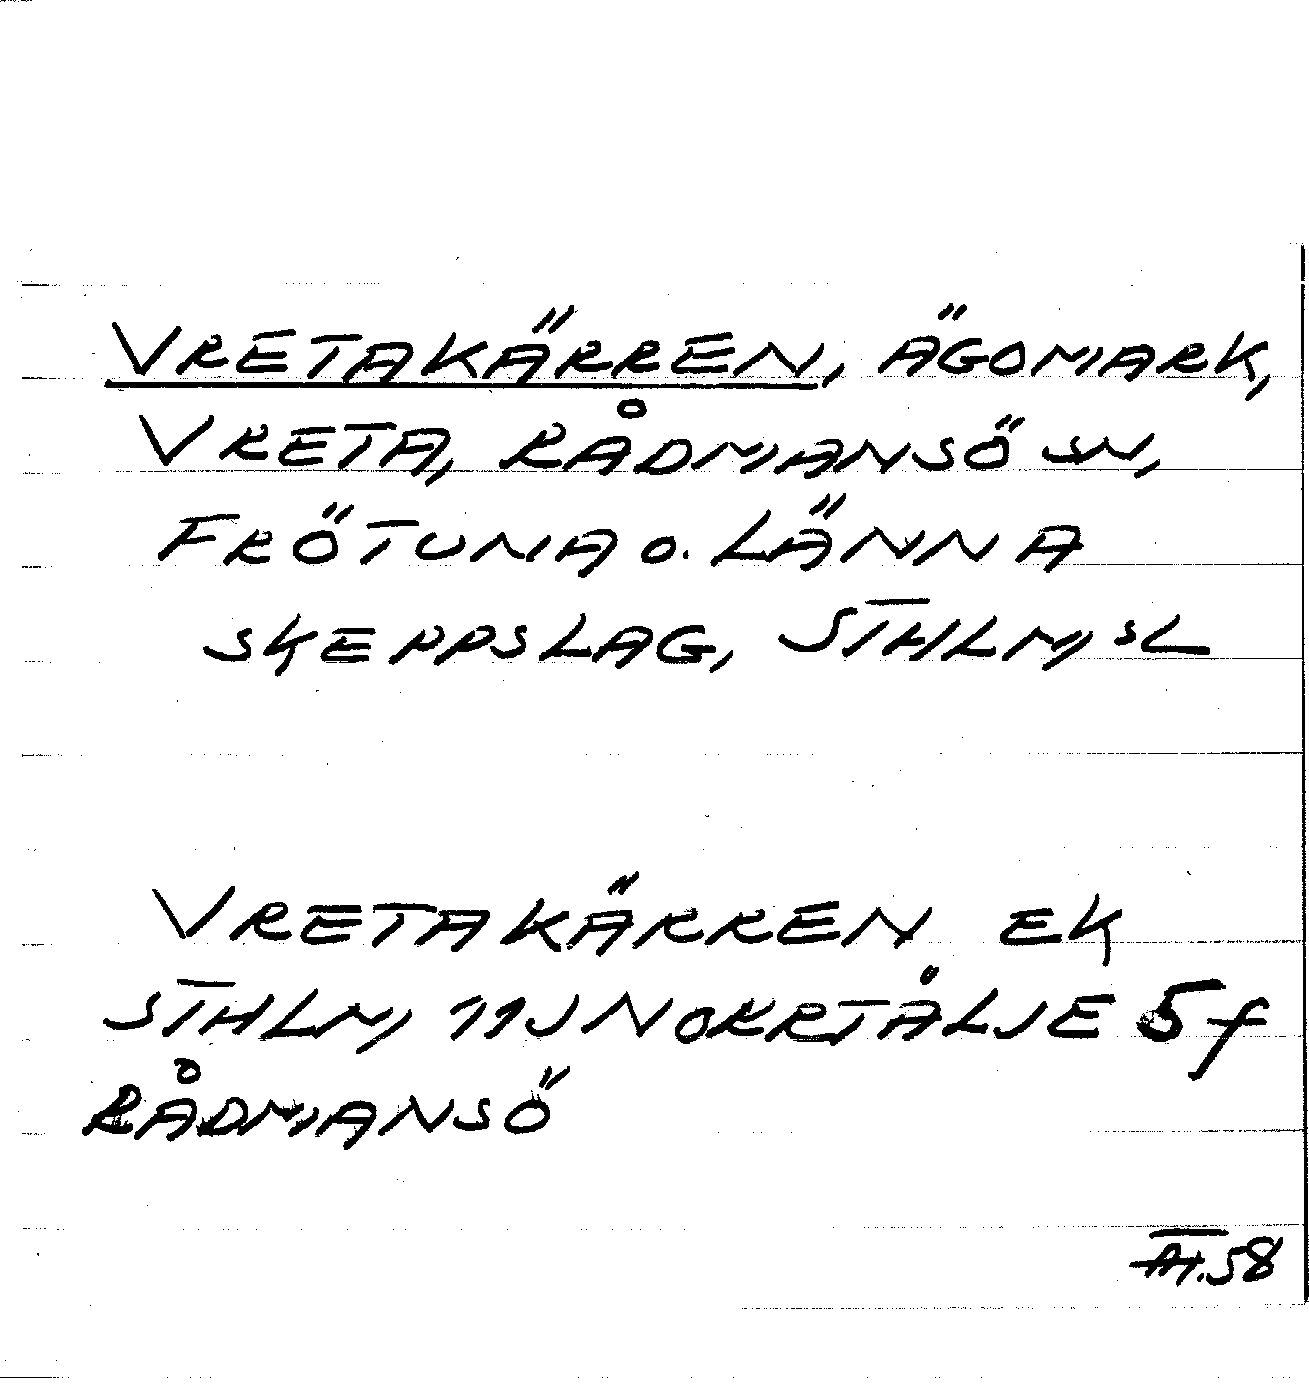 VRETAKÄRREN, ÄGOMARK,
VRETA, RÅDMANSÖ SN,
FRÖTUNA O. LÄNNA
SKEPPSLAG, STHLM, SL
VRETAKÄRREN EK
STHLM, 11J NORRTÄLJE 5f
RÅDMANSÖ
58